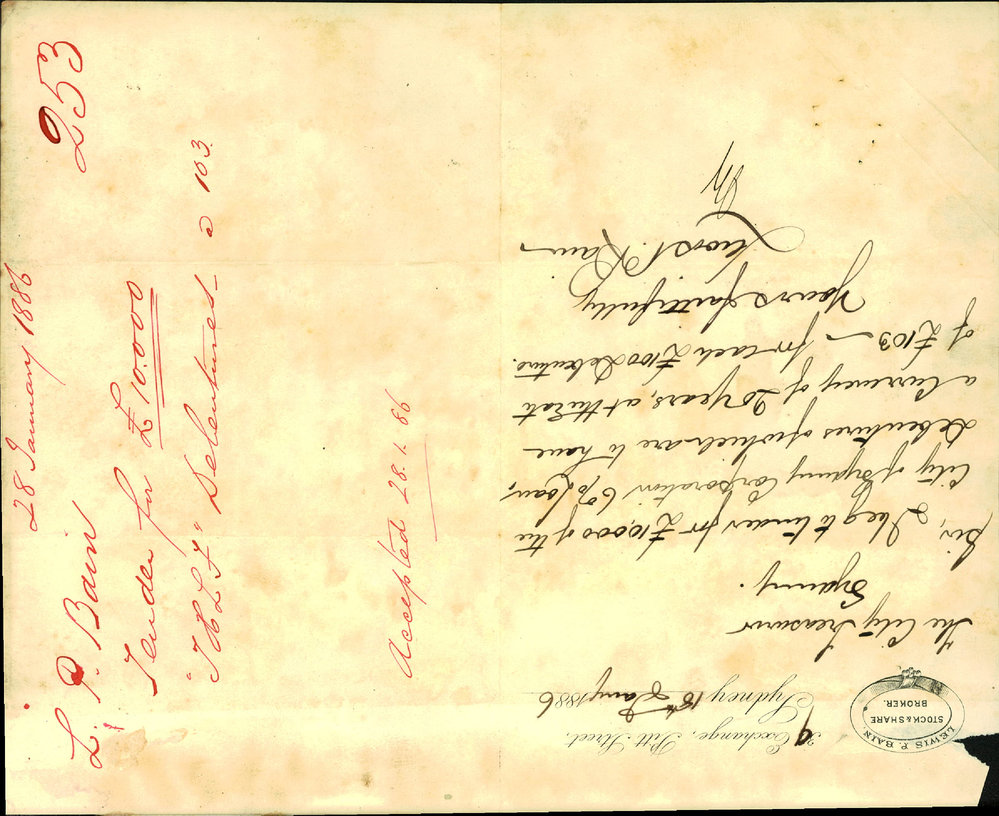 LEWIS P. BAIN,
STOCK & SHARE
BROKER.
39 Exchange, Pitt Street,
Sydney 18th Jany 1886
The City Treasurer
Sydney.
Sir, I beg to tender for £10,000 of the
City of Sydney Corporation 6% Loan,
Debentures of which are to have
a Currency of 20 years, at the rate
of £103 — for each £100 Debenture.
Yours faithfully
Lewis P. Bain
253
28 January 1886
L. P. Bain
Tender for £10.000
Debentures — @ 103.
Accepted 28.1.86